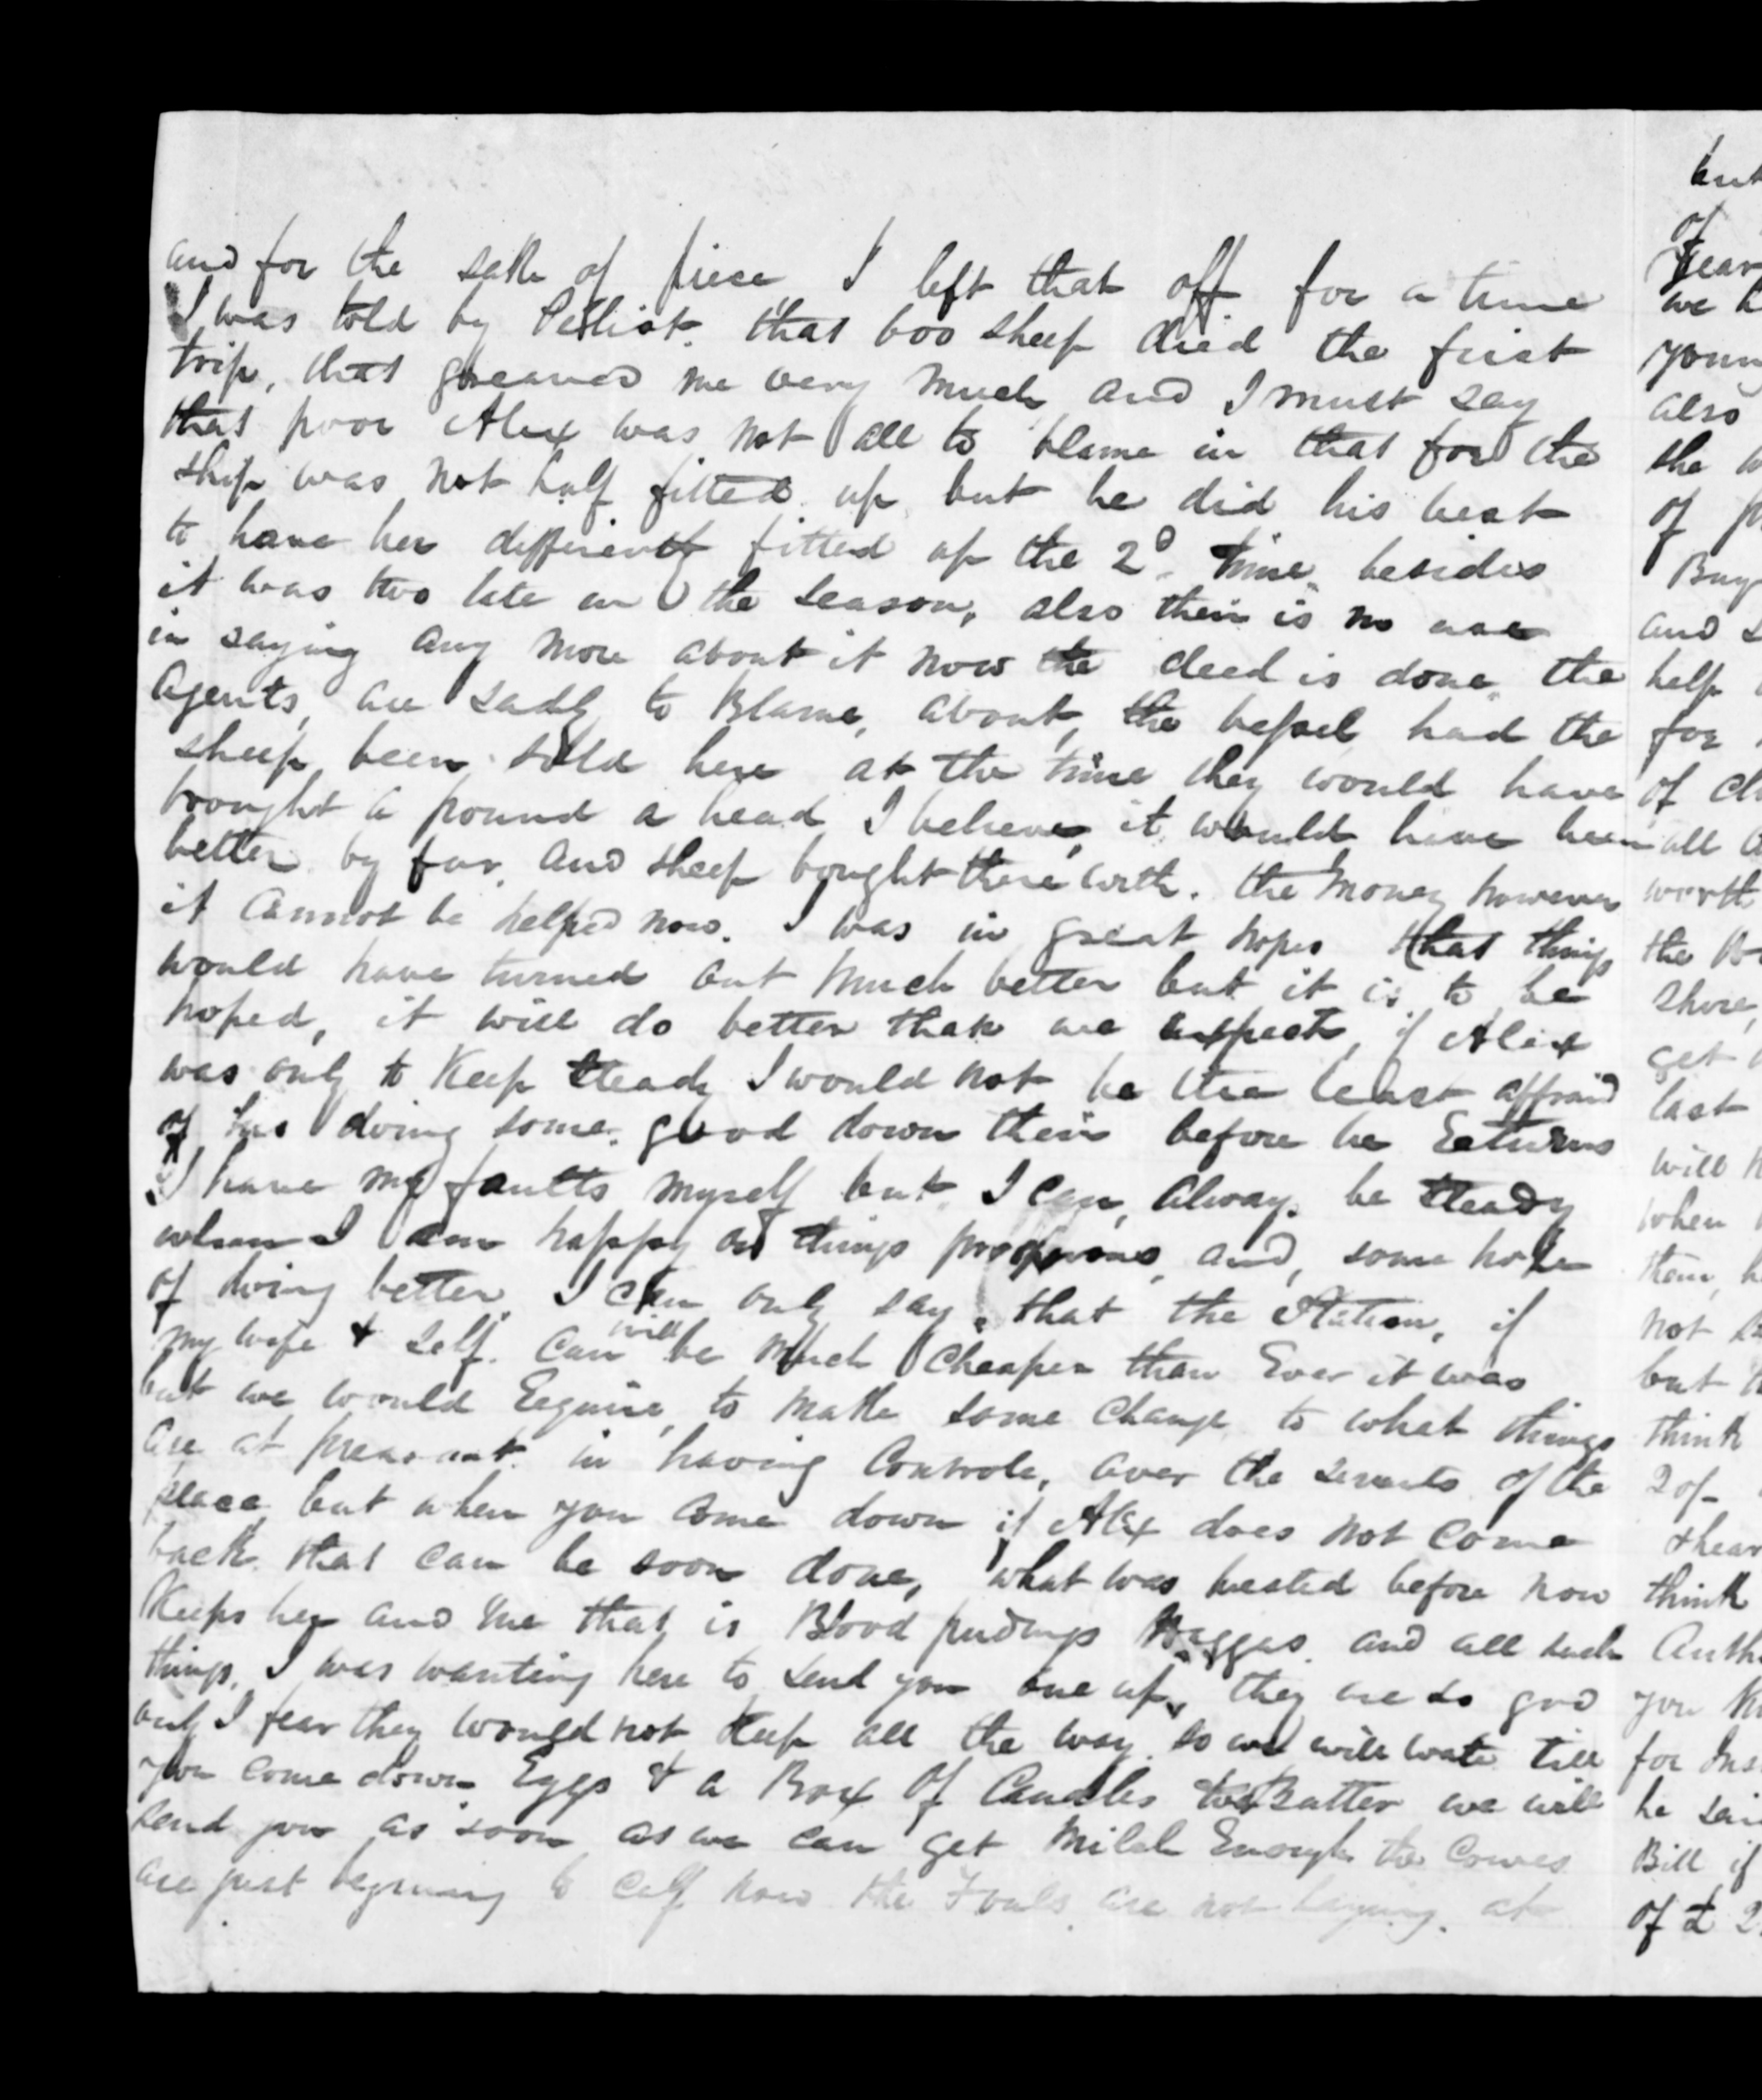 and for the sake of piece I left that off for a time
I was told by that 600 sheep died the first
trip, that greaved me very much and I must say
that poor Alex was not all to blame in that for the
ship was not half fitted up but he did his best
to have her differently fitted up the 2d time besides
it was two late in the season, also their is no use
in saying any more about it now the deed is done the
agents, are sadly to Blame, about, the vessel had the
sheep been sold here at the time they would have
brought a pound a head I believe, it would have been
better by far, and sheep bought there with. the money however
it cannot be helped now. I was in great hopes that things
would have turned out much better but it is to be
hoped, it will do better than we expect, if Alex
was only to Keep steady I would not be the least affraid
of his doing some good down their before he Returns
I have my faults myself but I can, always be steady
when I am happy and things prosperous, and, some hope
of doing better. I can only say that the Station, if
my wife & self. can will be much cheaper than Ever it was
but we would Require, to make some change to what things
are at presant in having Controle, over the servants of the
place but when you come down if Alex does not come
back that can be soon done, what was wested before now
Keeps her and me that is Blood pudings Haggas. and all such
things. I was wanting here to send you one up, they are so good
only I fear they would not Keep all the way so we will wate till
you come down Eggs & a Box Of Candles Butter we will
send you as soon as we can get Milch Enough the Cowes
are just begining to calf now the Fouls are not laying. at
but
of
Fear
we
your
also
she
of
Buy
and
help
for
of
all
worth
the
shore,
get
last
will
when
them,
not
but
think
20/-
think
you
for
he
Bill if
of £ 2